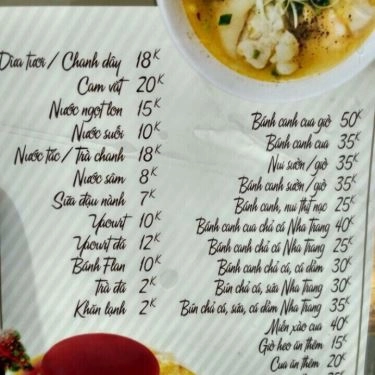 Dừa tươi / Chanh dây 18K
Cam vắt 20K
Nước ngọt lon 15K
Nước suối 10K
Nước tắc / Trà chanh 18K
Nước sâm 8K
Sữa đậu nành 7K
Yaourt 10K
Yaourt đá 12K
Bánh Flan 10K
Trà đá 2K
Khăn lạnh 2K
Bánh canh cua giò 50K
Bánh canh cua 35K
Nui sườn/giò 35K
Bánh canh sườn/giò 35K
Bánh canh, nui thịt nạc 25K
Bánh canh cua chả cá Nha Trang 40K
Bánh canh chả cá Nha Trang 25K
Bánh canh chả cá, cá dầm 30K
Bún chả cá, sứa Nha Trang 30K
Bún chả cá, sứa, cá dầm Nha Trang 35K
Miến xào cua 40K
Giò heo ăn thêm 15K
Cua ăn thêm 20K